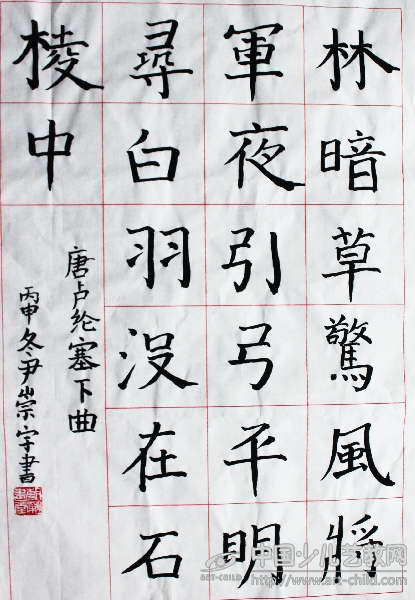 林暗草驚風將
軍夜引弓平明
尋白羽没在石
棱中
唐卢纶塞下曲
丙申冬尹崇宇書
中国少儿艺教网
ART-CHILD
http://www.art-child.com